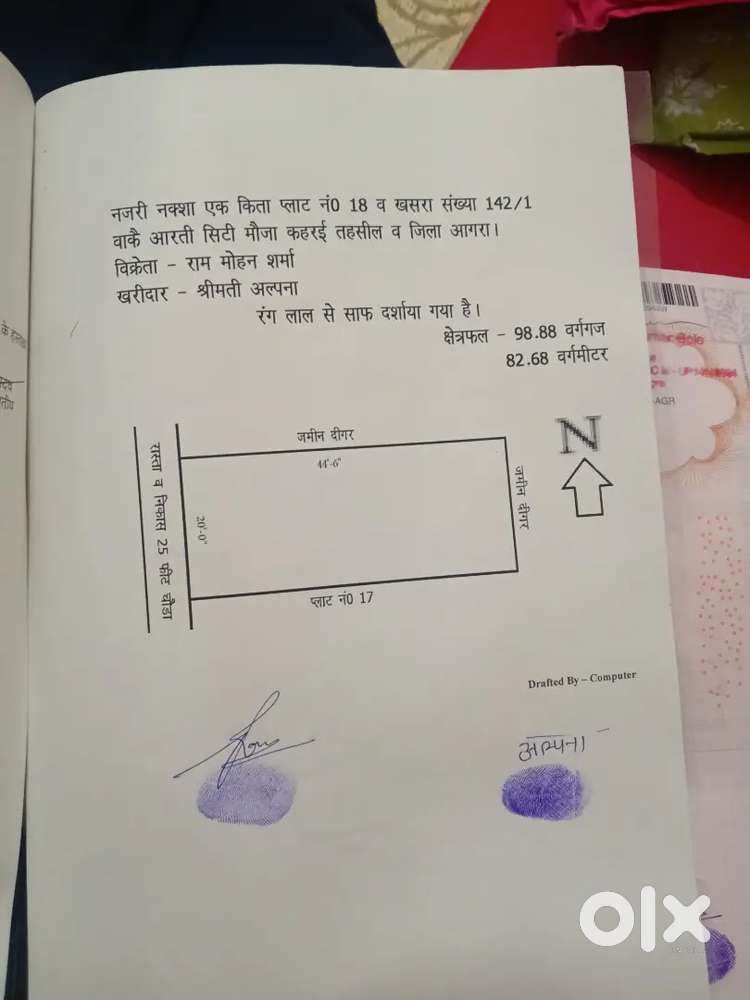 नजरी नक्शा एक किता प्लाट नं0 18 व खसरा संख्या 142/1
वाकै आरती सिटी मौजा कहरई तहसील व जिला आगरा।
विक्रेता - राम मोहन शर्मा
खरीदार - श्रीमती अल्पना
रंग लाल से साफ दर्शाया गया है।
क्षेत्रफल - 98.88 वर्गगज
82.68 वर्गमीटर
N
जमीन दीगर
44'-6"
रास्ता व निकास 25 फीट चौडा
20'-0"
जमीन दीगर
प्लाट नं0 17
Drafted By – Computer
अल्पना
-AGR
olx